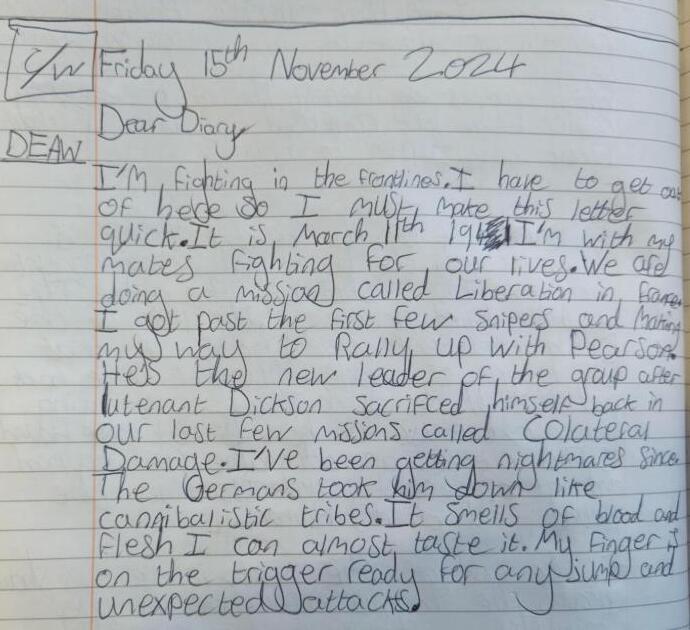 C/W Friday 15th November 2024
Dear Diary
DEAW
I'M fighting in the frontlines. I have to get out
of here so I must make this letter
quick. It is March 11th 194 I'm with my
mates fighting for our lives. We are
doing a mission called Liberation in france.
I got past the first few snipers and Making
my way to Rally up with Pearson.
He's the new leader of the group after
lutenant Dickson sacrifced himself back in
our last few missions called Colateral
Damage. I've been getting nightmares since
The Germans took him down like
cannibalistic tribes. It smells of blood and
flesh I can almost taste it. My finger is
on the trigger ready for any jump and
unexpected attacks.